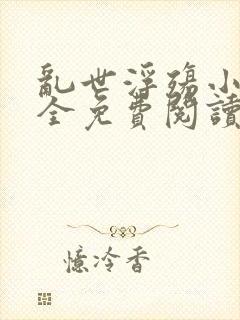 亂世浮殤小
全免費閱讀
憶冷香